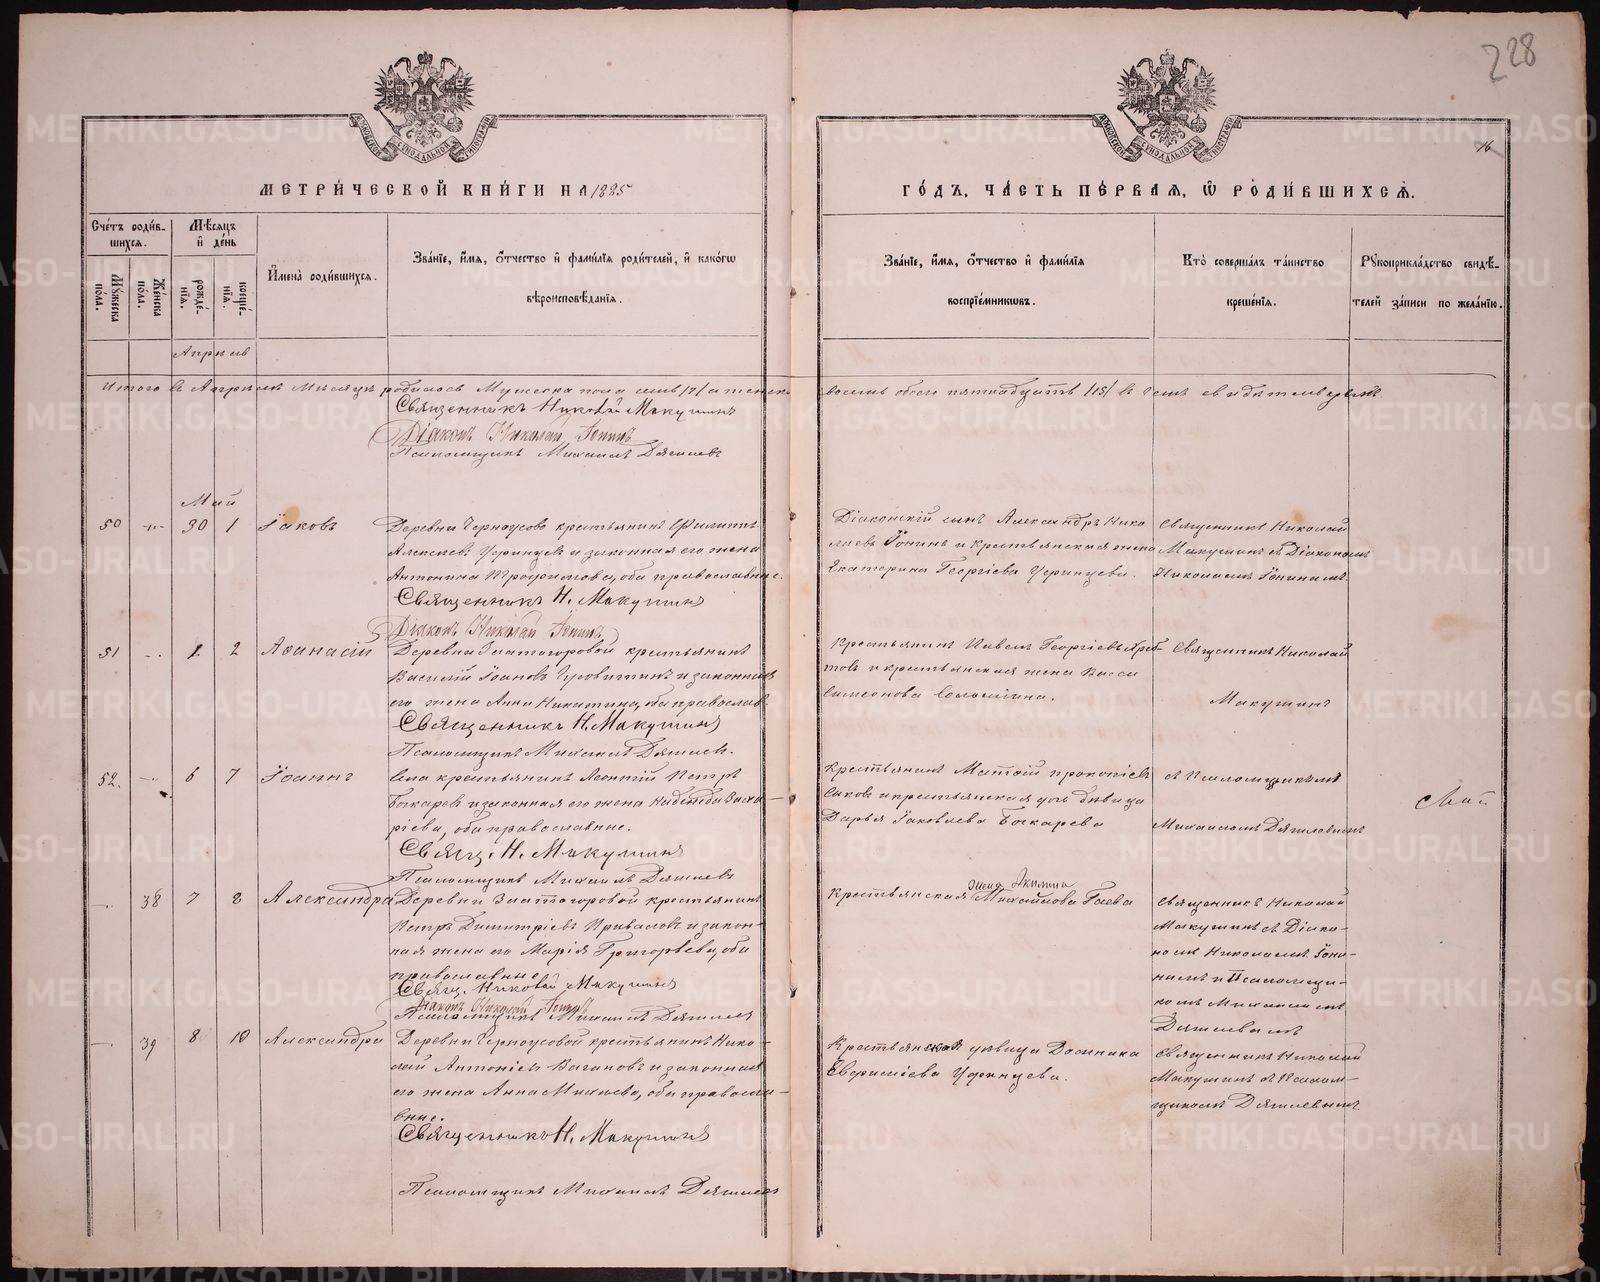 228
16
МЕТРИ́ЧЕСКОЙ КНИ́ГИ НА 1885
ГО́ДЪ, ЧА́СТЬ ПЕ́РВАЯ, Ѽ РОДИ́ВШИХСѦ.
Сче́тъ роди́в-
шихся.
Мѣ́сяцъ
и҆ де́нь
Му́жеска
по́ла.
Же́нска
по́ла.
рожде́-
нїя.
креще́-
нїя.
И҆мена̀ роди́вшихся.
Зва́нїе, и҆́мя, ѻ҆́тчество и҆ фами́лїя роди́телей, и҆ како́гѡ
вѣроисповѣ́данїя.
Зва́нїе, и҆́мя, ѻ҆́тчество и҆ фами́лїя
воспрїе́мникѡвъ.
Кто̀ соверша́лъ та́инство
креще́нїя.
Рꙋкоприкла́дство свидѣ́-
телей за́писи по жела́нїю.
Апрѣль
Итого в Апрѣлѣ мѣсяцѣ родилось мужеска пола семь /7/ а женска
восемь обоего пятнадцать /15/ в чемъ свидѣтельствуемъ
Священникъ Николай Макушинъ
Діаконъ Николай Іонинъ
Псаломщикъ Михаилъ Дягилевъ
Май
50 30 1 Іаковъ
Деревни Черноусово крестьянинъ Филиппъ
Алексѣевъ Уфинцевъ и законная его жена
Антонина Трофимова, оба православные.
Священникъ Н. Макушинъ
Діаконъ Николай Іонинъ
Діаконскій сынъ Александръ Нико
лаевъ Іонинъ и крестьянская жена
Екатерина Георгіева Уфинцева.
Священникъ Николай
Макушинъ съ Діакономъ
Николаемъ Іонинымъ
51 1 2 Аѳанасій
Деревни Златогоровой крестьянинъ
Василій Іоановъ и законная
его жена Анна Никитина, оба православ.
Священникъ Н. Макушинъ
Псаломщикъ Михаилъ Дягилев.
Крестьянинъ Павелъ Георгіевъ
товъ и крестьянская жена Васса
Симеонова
Священникъ Николай
Макушинъ
52. 6 7 Іоаннъ
Села крестьянинъ Леонтій Петр
Бочкаревъ и законная его жена Надежда Заха-
ріева, оба православные.
Свящ. Н. Макушинъ
Псаломщикъ Михаилъ Дягилевъ
Крестьянинъ Матѳій Прокопіевъ
и крестьянская дочь дѣвица
Дарья Іаковлева Бочкарева
съ Псаломщикомъ
Михаиломъ Дягилевымъ
38 7 8 Александра
Деревни Златогоровой крестьянинъ
Петръ Димитріевъ Приваловъ и закон-
ная жена его Марія Григорьева, оба
православные
Свящ. Николай Макушинъ
Діаконъ Николай Іонинъ
Псаломщикъ Михаилъ Дягилевъ
жена Акилина
Крестьянская Михайлова Гаева
Священникъ Николай
Макушинъ съ Діако-
номъ Николаемъ Іони-
нымъ и Псаломщи-
комъ Михаиломъ
Дягилевымъ
39 8 10 Александра
Деревни Черноусовой крестьянинъ Нико-
лай Антоніевъ Вагановъ и законная
его жена Анна Михеева, оба правосла-
вные.
Священникъ Н. Макушинъ
Псаломщикъ Михаилъ Дягилевъ
Крестьянская дѣвица Домника
Уфинцева.
Священникъ Николай
Макушинъ съ Псалом-
щикомъ Дягилевымъ